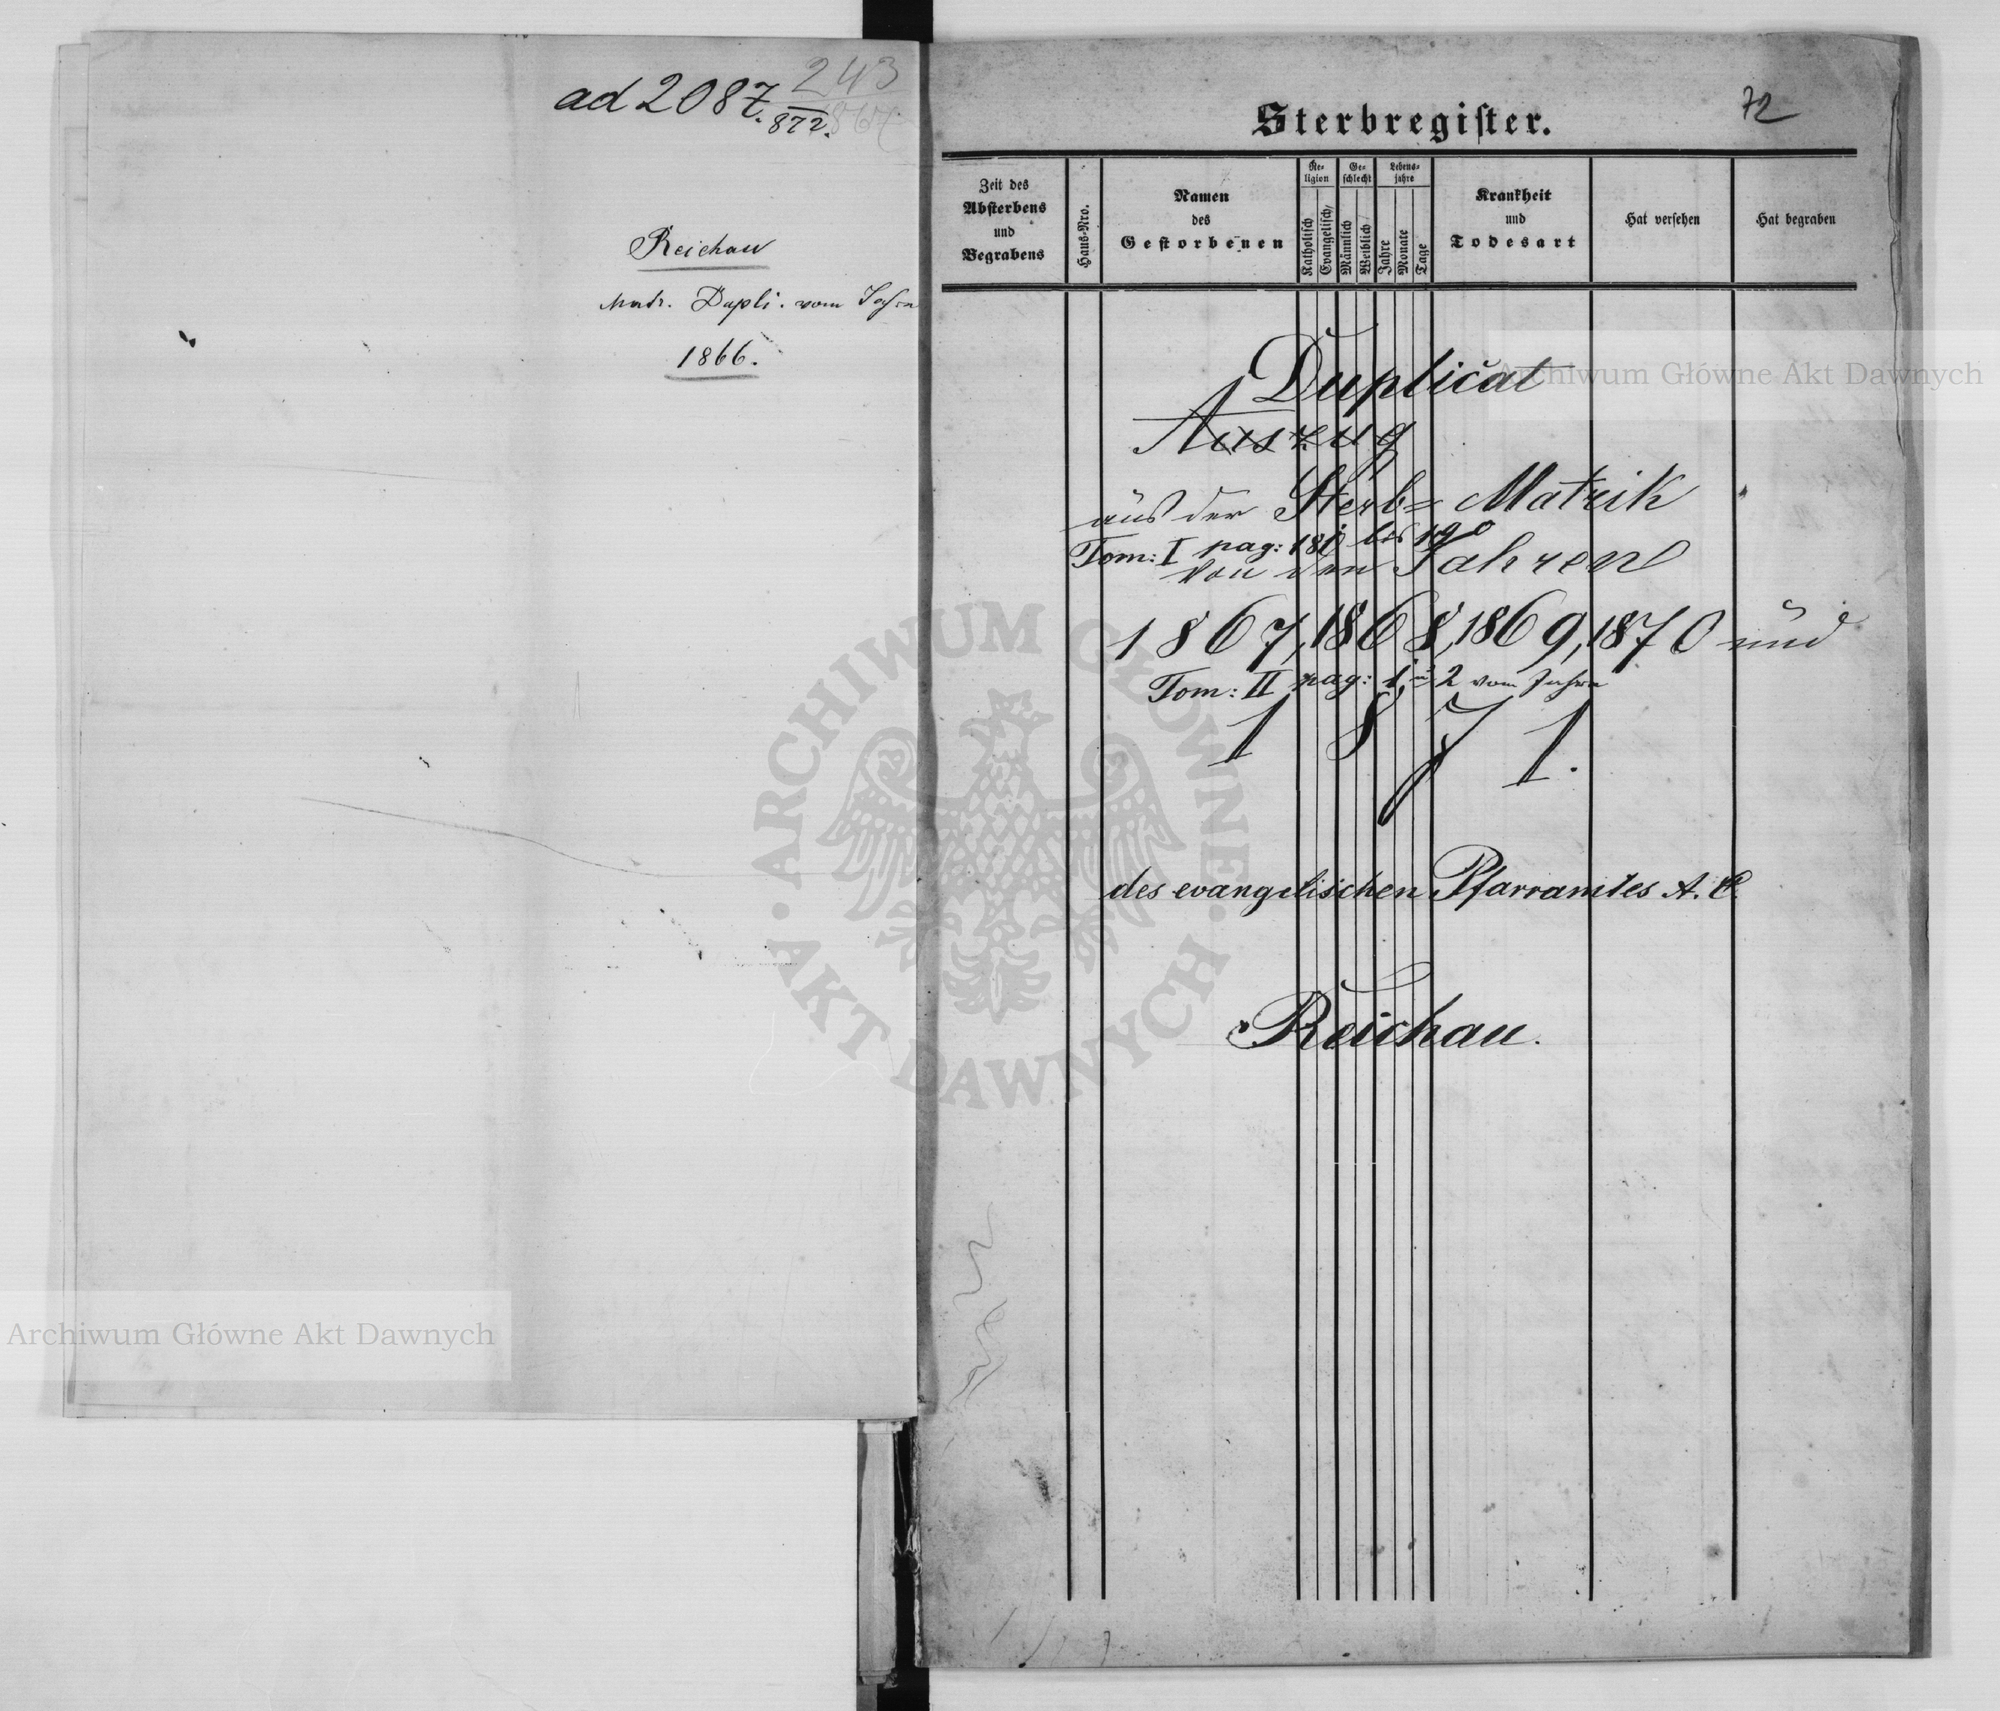 243
ad 2087. 867
872.
Reichau
Matr. Dupli. vom Jahre
1866.
72
Sterbregister.
Zeit des
Absterbens
und
Begrabens
Haus-Nro.
Namen
des
Gestorbenen
Re-
ligion
Katholisch
Evangelisch
Ge-
schlecht
Männlich
Weiblich
Lebens-
jahre
Jahre
Monate
Tage
Krankheit
und
Todesart
Hat versehen
Hat begraben
Duplicat
Auszug
aus der Sterb= Matrik
Tom: I pag: 181 bis 190
von den Jahren
1867, 1868, 1869, 1870 und
Tom: II pag: 1 u 2 vom Jahre
1871.
des evangelischen Pfarramtes A. C.
Reichau.
Archiwum Główne Akt Dawnych
ARCHIWUM GŁÓWNE · AKT DAWNYCH ·
Archiwum Główne Akt Dawnych